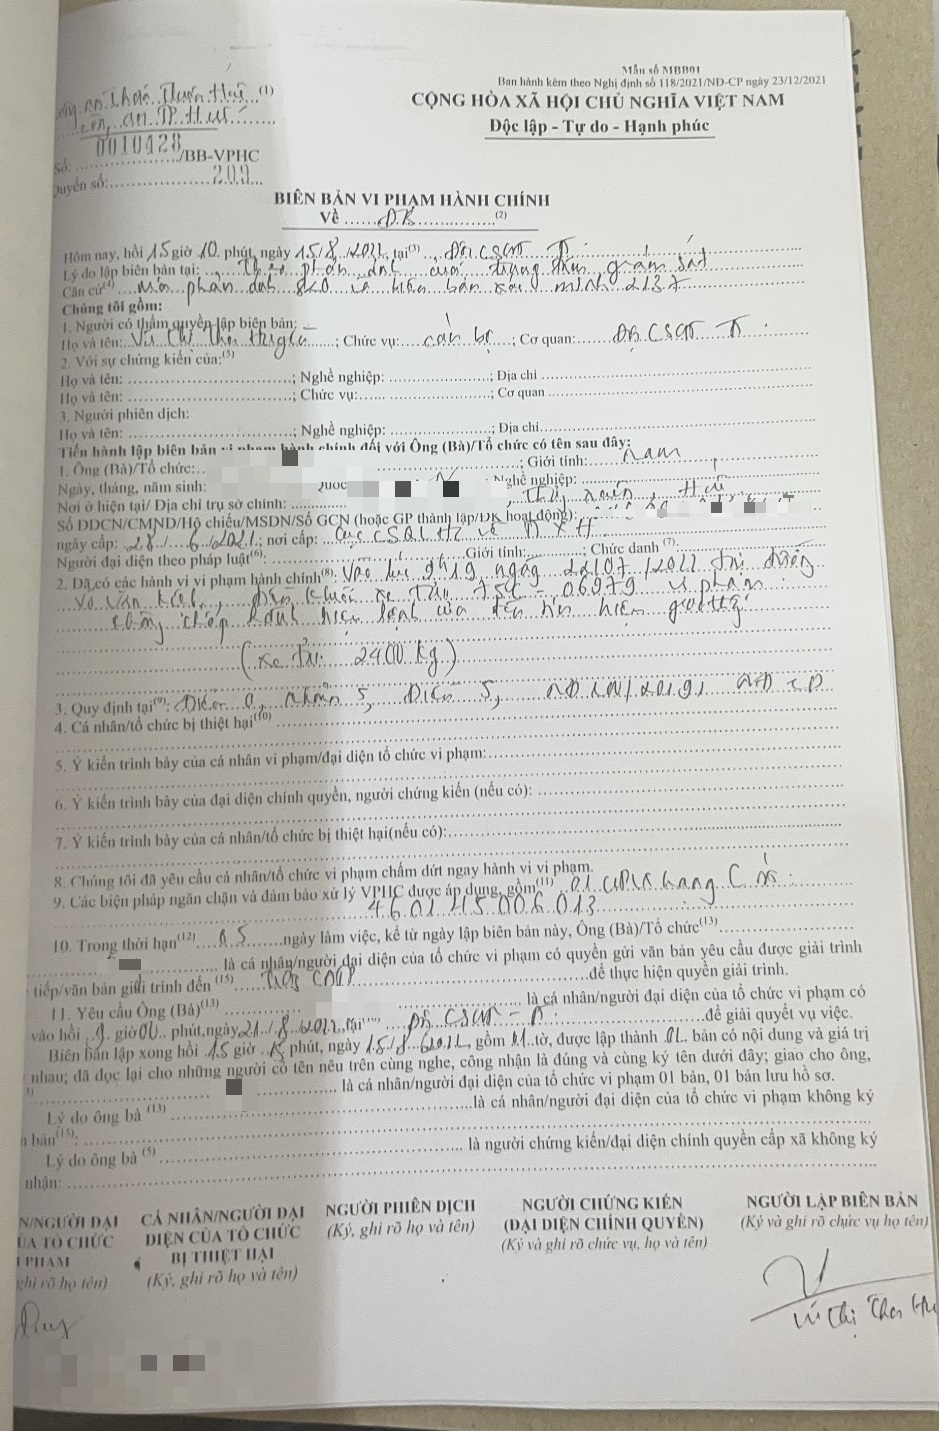 Mẫu số MBB01
Ban hành kèm theo Nghị định số 118/2021/NĐ-CP ngày 23/12/2021
CỘNG HÒA XÃ HỘI CHỦ NGHĨA VIỆT NAM
Độc lập - Tự do - Hạnh phúc
(1)
an TP Huế
Số: 0010428 /BB-VPHC
Quyển số: 209
BIÊN BẢN VI PHẠM HÀNH CHÍNH
Về ĐB (2)
Hôm nay, hồi 15 giờ 10 phút, ngày 15/8/2022, tại(3) Đội CSGT
Lý do lập biên bản tại: phản ánh của trung tâm giám sát
Căn cứ(4) phản ánh và biên bản xác minh 2137
Chúng tôi gồm:
1. Người có thẩm quyền lập biên bản:
Họ và tên: Vũ Thị; Chức vụ: cán bộ; Cơ quan: Đội CSGT
2. Với sự chứng kiến của:(5)
Họ và tên: ; Nghề nghiệp: ; Địa chỉ
Họ và tên: ; Chức vụ: ; Cơ quan
3. Người phiên dịch:
Họ và tên: ; Nghề nghiệp: ; Địa chỉ
Tiến hành lập biên bản vi phạm hành chính đối với Ông (Bà)/Tổ chức có tên sau đây:
1. Ông (Bà)/Tổ chức: ; Giới tính: nam
Ngày, tháng, năm sinh: Quốc Nghề nghiệp:
Nơi ở hiện tại/ Địa chỉ trụ sở chính: Huế
Số ĐDCN/CMND/Hộ chiếu/MSDN/Số GCN (hoặc GP thành lập/ĐK hoạt động):
ngày cấp: 28/6/2021; nơi cấp: Cục CSQLHC về TTXH
Người đại diện theo pháp luật(6): Giới tính: ; Chức danh (7):
2. Đã có các hành vi vi phạm hành chính(8): Vào lúc 9h19 ngày 22/07/2022 tại đường
Võ Văn Kiệt, điều khiển xe tải 75C - 06979 vi phạm:
Không chấp hành hiệu lệnh của đèn tín hiệu giao thông
(xe tải 2400 kg)
3. Quy định tại(9): Điểm a, khoản 5, Điều 5, NĐ 100/2019/NĐ-CP
4. Cá nhân/tổ chức bị thiệt hại(10)
5. Ý kiến trình bày của cá nhân vi phạm/đại diện tổ chức vi phạm:
6. Ý kiến trình bày của đại diện chính quyền, người chứng kiến (nếu có):
7. Ý kiến trình bày của cá nhân/tổ chức bị thiệt hại(nếu có):
8. Chúng tôi đã yêu cầu cá nhân/tổ chức vi phạm chấm dứt ngay hành vi vi phạm.
9. Các biện pháp ngăn chặn và đảm bảo xử lý VPHC được áp dụng, gồm(11) 01 GPLX hạng C số
460121500 6013
10. Trong thời hạn(12) 05 ngày làm việc, kể từ ngày lập biên bản này, Ông (Bà)/Tổ chức(13)
là cá nhân/người đại diện của tổ chức vi phạm có quyền gửi văn bản yêu cầu được giải trình
tiếp/văn bản giải trình đến (15) để thực hiện quyền giải trình.
11. Yêu cầu Ông (Bà)(13) là cá nhân/người đại diện của tổ chức vi phạm có
vào hồi 9 giờ 00 phút, ngày 21/8/2022, tại Đội CSGT để giải quyết vụ việc.
Biên bản lập xong hồi 15 giờ 15 phút, ngày 15/8/2022, gồm 01 tờ, được lập thành 02 bản có nội dung và giá trị
nhau; đã đọc lại cho những người có tên nêu trên cùng nghe, công nhận là đúng và cùng ký tên dưới đây; giao cho ông,
là cá nhân/người đại diện của tổ chức vi phạm 01 bản, 01 bản lưu hồ sơ.
Lý do ông bà (13) là cá nhân/người đại diện của tổ chức vi phạm không ký
bản(15):
Lý do ông bà (5) là người chứng kiến/đại diện chính quyền cấp xã không ký
nhận:
N/NGƯỜI ĐẠI CÁ NHÂN/NGƯỜI ĐẠI NGƯỜI PHIÊN DỊCH NGƯỜI CHỨNG KIẾN NGƯỜI LẬP BIÊN BẢN
ỦA TỔ CHỨC DIỆN CỦA TỔ CHỨC (Ký, ghi rõ họ và tên) (ĐẠI DIỆN CHÍNH QUYỀN) (Ký và ghi rõ chức vụ họ tên)
PHẠM BỊ THIỆT HẠI (Ký và ghi rõ chức vụ, họ và tên)
ghi rõ họ tên) (Ký, ghi rõ họ và tên)
Vũ Thị